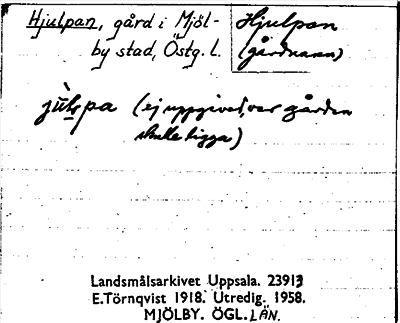 Hjulpan, gård i Mjöl-
by stad, Östg. l.
Hjulpan
(gårdnamn)
(ej uppgivet, var gården
skulle ligga)
Landsmålsarkivet Uppsala. 23913
E.Törnqvist 1918. Utredig. 1958.
MJÖLBY. ÖGL. LÄN.